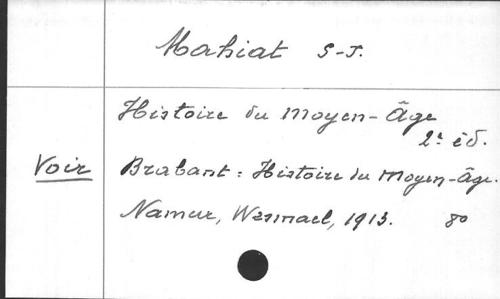 Mahiat S-J.
Histoire du Moyen-Âge
2e éd.
Voir
Brabant : Histoire du Moyen-Âge.
Namur, Wesmael, 1913. 8o